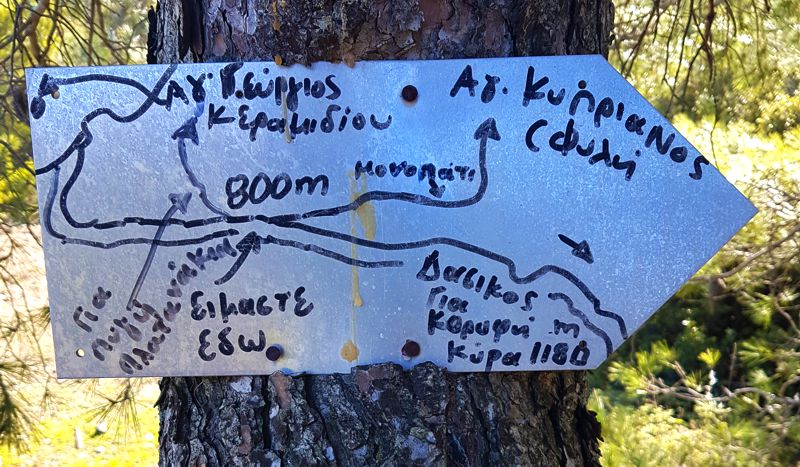 Αγ. Γεώργιος
Κεραμιδίου
Αγ. Κυπριανος
(Φυλή
800m
μονοπάτι
Για
Πλατανάκια
Ειμαστε
Εδω
Δασικος
Για
Κορυφή
Κύρα 1180